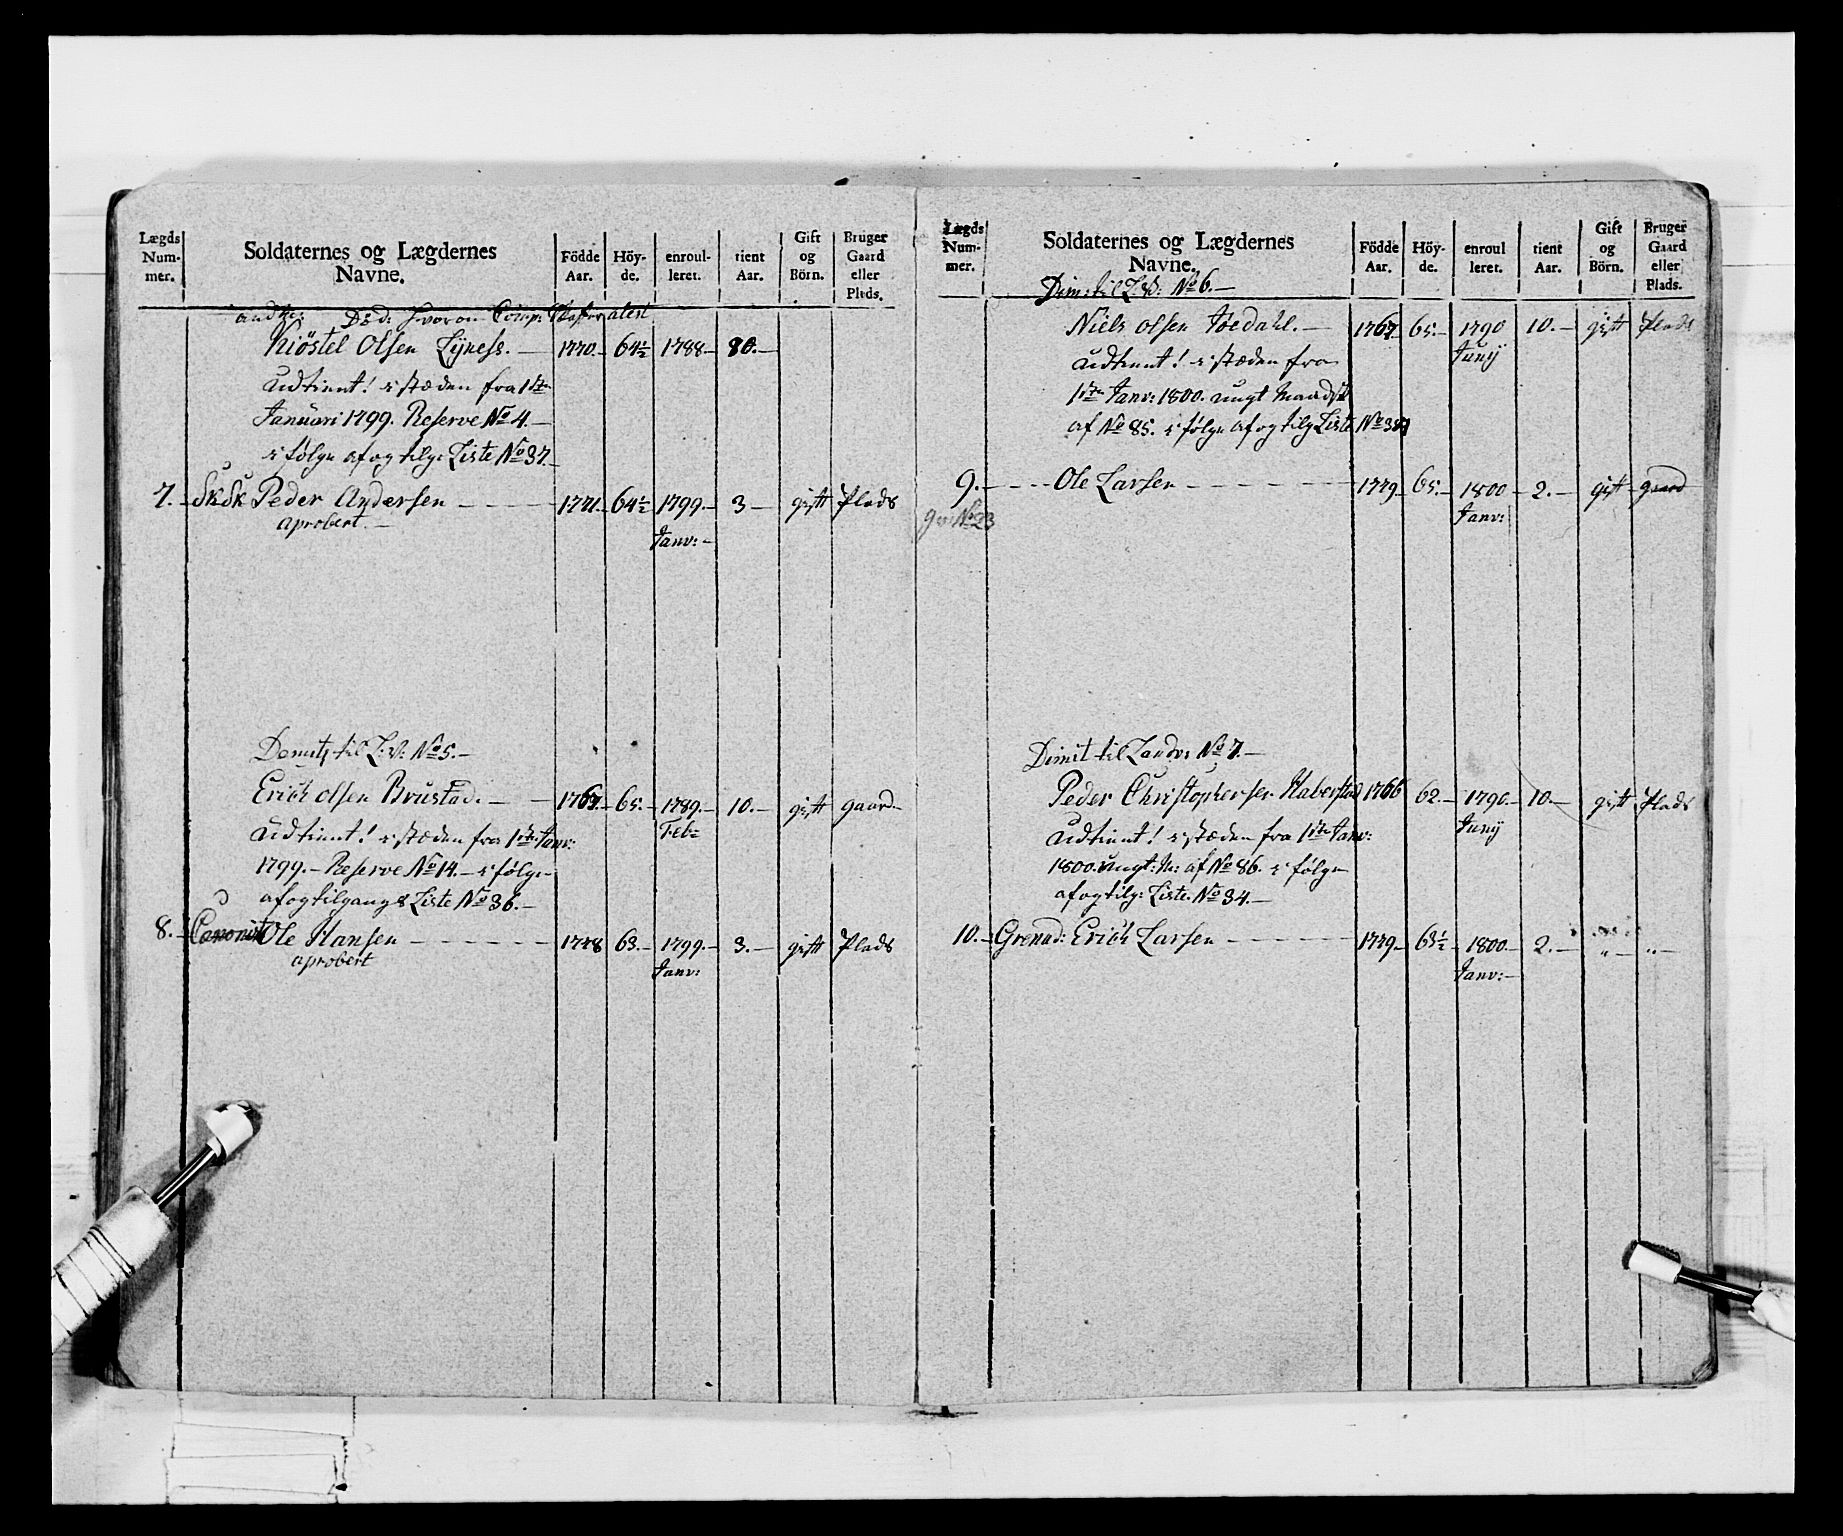 Lægds Num- mer.
Soldaternes og Lægdernes Navne.
Födde Aar.
Höy- de.
enroul- leret.
tient Aar.
Gift og Börn.
Bruger Gaard eller Plads.
Död: hvorom Comp:
Kiöstel Olsen 1770.- 64½ 1788- 10.-
udtient! i stæden fra 1ste
Januari 1799. Reserve No 4.-
i følge af og tilg: Liste No 37.-
7.- Peder Andersen - - - - 1771.- 64½ 1799.- 3- gift Plads
aprobert.- Janv:-
Demits til L:V: No 5.-
Erich Olsen Brustad.- - 1767.- 65.- 1789.- 10.- gift gaard-
udtient! i stæden fra 1ste Janv: Feb:
1799.- Reserve No 14.- i følge
af og tilgangs Liste No 36.-
8.- Ole Hansen - - - - - 1778 63.- 1799.- 3.- gift Plads
aprobert Janv:
Lægds Num- mer.
Soldaternes og Lægdernes Navne.
Födde Aar.
Höy- de.
enroul leret.
tient Aar.
Gift og Börn.
Bruger Gaard eller Plads.
Dim: til L:V: No 6.-
Niels Olsen 1767 65.- 1790 10.- gift Plads
udtient! i stæden fra Junij
1ste Janv: 1800. ungt Mandsk
af No 85. i følge af og tilg Liste No 34
9.- - - - Ole Larsen - - - - - 1779- 65.- 1800- 2.- gift gaard
No 23 Janv:
Dimit til Landv: No 7.-
Peder Christophersen Haberstad 1766 62- 1790- 10- gift Plads
udtient! i stæden fra 1ste Janv: Junij
1800. ungt: M: af No 86. i følge
af og tilg: Liste No 34.-
10.- Grenad: Erich Larsen - - - - - 1779- 63½ 1800- 2.- "- "-
Janv:-